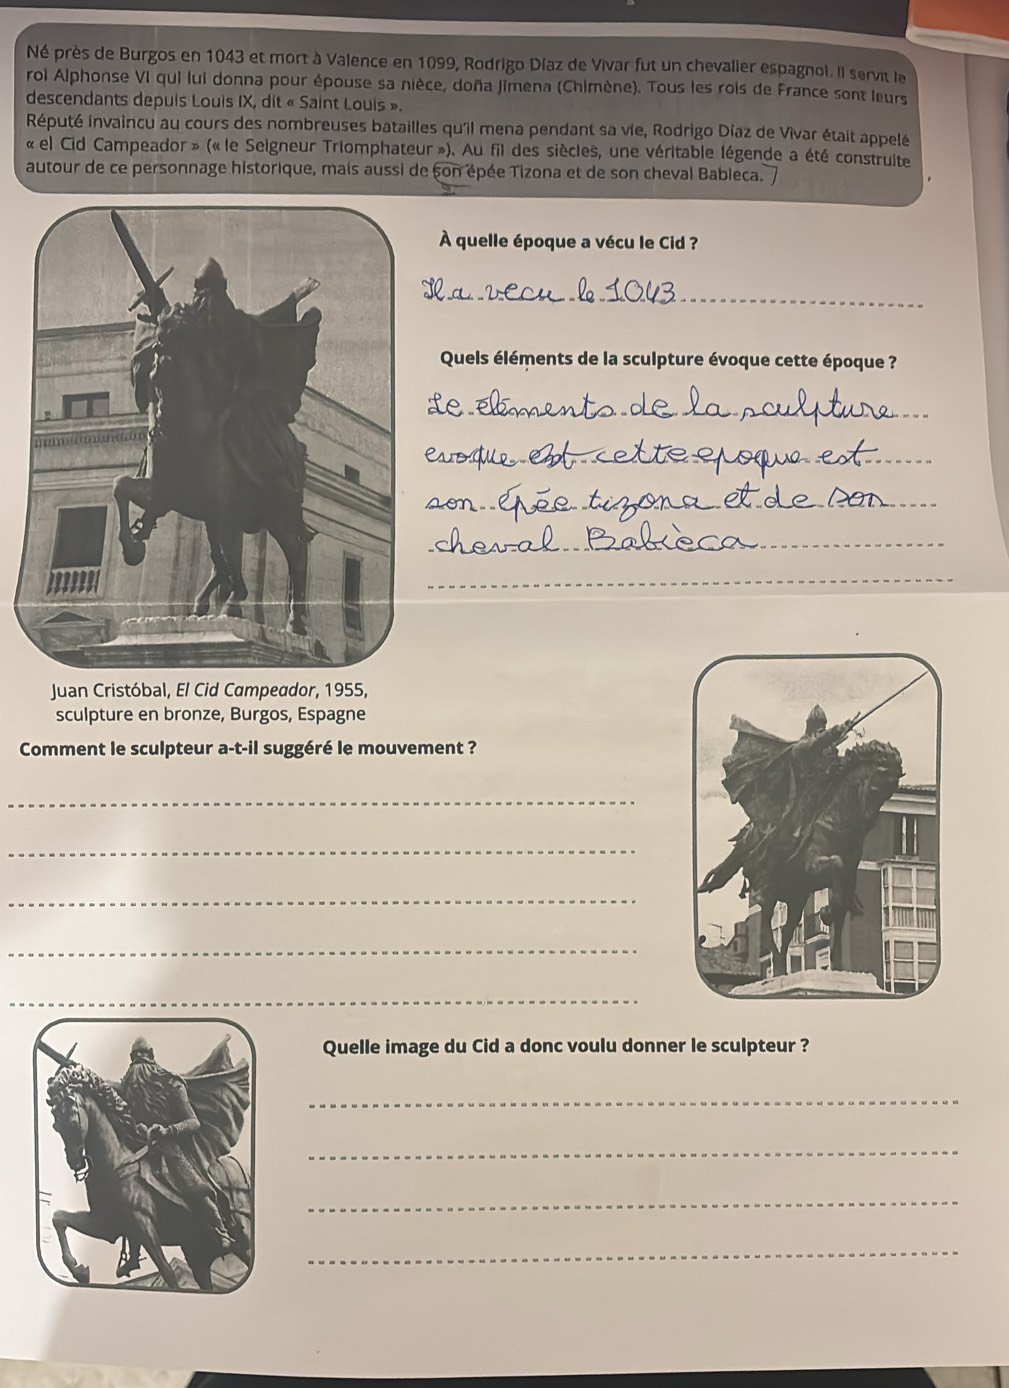 Né près de Burgos en 1043 et mort à Valence en 1099, Rodrigo Díaz de Vivar fut un chevalier espagnol. Il servit le
roi Alphonse VI qui lui donna pour épouse sa nièce, doña Jimena (Chimène). Tous les rois de France sont leurs
descendants depuis Louis IX, dit « Saint Louis ».
Réputé invaincu au cours des nombreuses batailles qu'il mena pendant sa vie, Rodrigo Díaz de Vivar était appelé
« el Cid Campeador » (« le Seigneur Triomphateur »). Au fil des siècles, une véritable légende a été construite
autour de ce personnage historique, mais aussi de son épée Tizona et de son cheval Babieca.
À quelle époque a vécu le Cid ?
Il a vecu le 1043
Quels éléments de la sculpture évoque cette époque ?
Le éléments de la sculpture
evoque est cette epoque est
son épée tizona et de son
cheval Babièca
Juan Cristóbal, El Cid Campeador, 1955,
sculpture en bronze, Burgos, Espagne
Comment le sculpteur a-t-il suggéré le mouvement ?
Quelle image du Cid a donc voulu donner le sculpteur ?